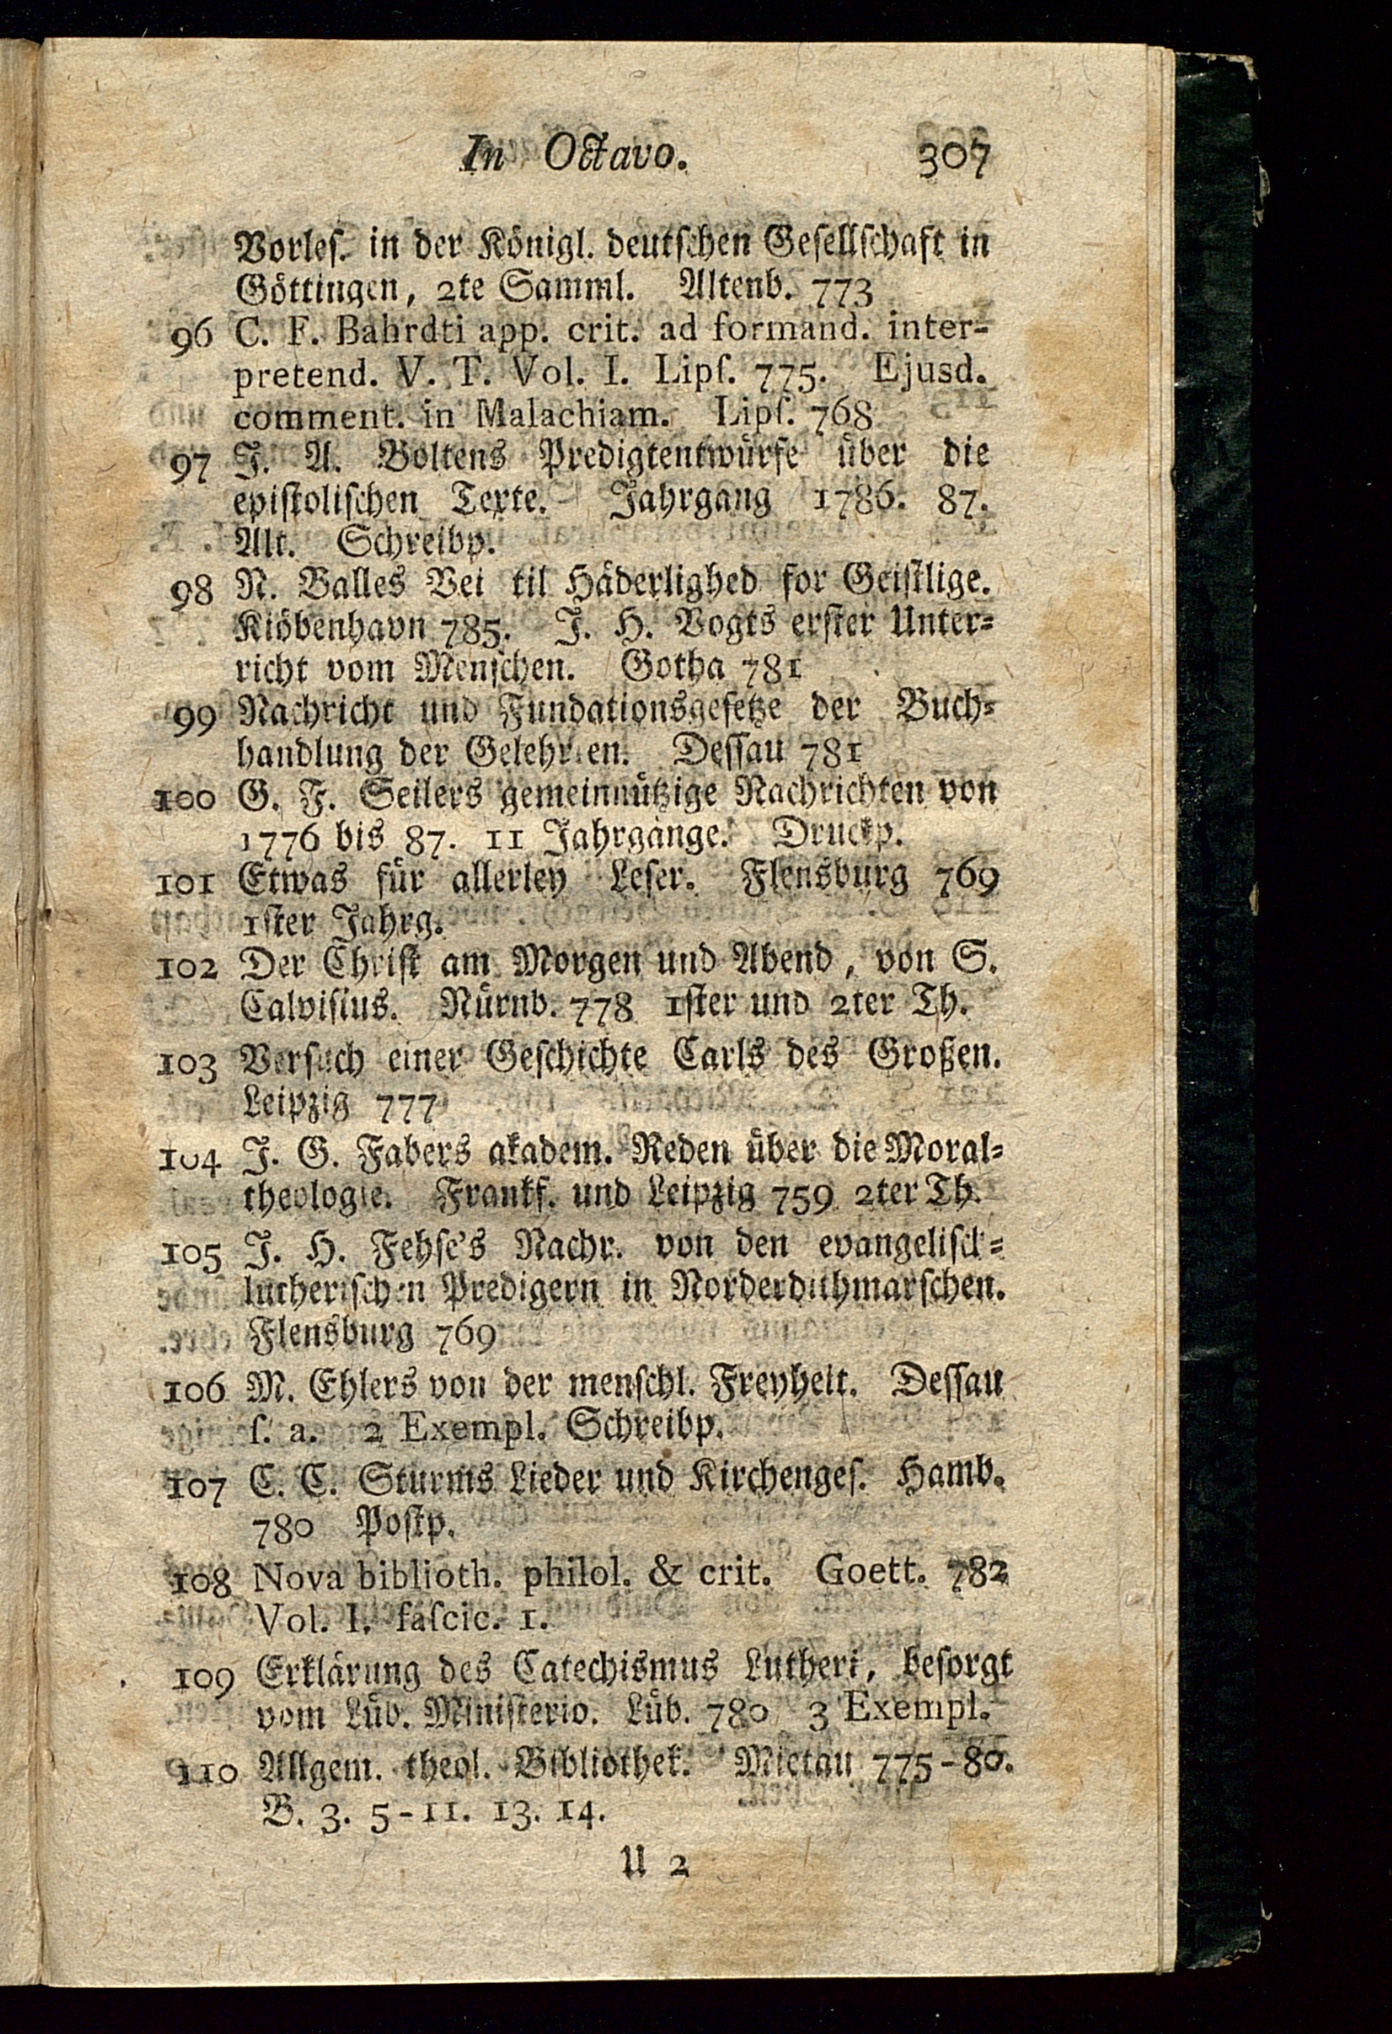 In Octavo. 307
Vorles. in der Königl. deutschen Gesellschaft in
Göttingen, 2te Samml. Altenb. 773
96 C. F. Bahrdti app. crit. ad formand. inter-
pretend. V. T. Vol. I. Lipſ. 775. Ejusd.
comment. in Malachiam. Lipſ. 768
97 J. A. Boltens Predigtentwürfe über die
epistolischen Texte. Jahrgang 1786. 87.
Alt. Schreibp.
98 N. Balles Vei til Häderlighed for Geistlige.
Kiöbenhavn 785. J. H. Vogts erster Unter-
richt vom Menschen. Gotha 781
99 Nachricht und Fundationsgesetze der Buch-
handlung der Gelehrten. Dessau 781
100 G. F. Seilers gemeinnützige Nachrichten von
1776 bis 87. 11 Jahrgänge. Druckp.
101 Etwas für allerley Leser. Flensburg 769
1ster Jahrg.
102 Der Christ am Morgen und Abend, von S.
Calvisius. Nürnb. 778 1ster und 2ter Th.
103 Versuch einer Geschichte Carls des Großen.
Leipzig 777
104 J. G. Fabers akadem. Reden über die Moral-
theologie. Frankf. und Leipzig 759 2ter Th.
105 J. H. Fehse's Nachr. von den evangelisch-
lutherischen Predigern in Norderdithmarschen.
Flensburg 769
106 M. Ehlers von der menschl. Freyheit. Dessau
ſ. a. 2 Exempl. Schreibp.
107 C. C. Sturms Lieder und Kirchenges. Hamb.
780 Postp.
108 Nova biblioth. philol. & crit. Goett. 782
Vol. I. faſcic. 1.
109 Erklärung des Catechismus Lutheri, besorgt
vom Lüb. Ministerio. Lüb. 780 3 Exempl.
110 Allgem. theol. Bibliothek. Mietau 775-80.
B. 3. 5-11. 13. 14.
U 2